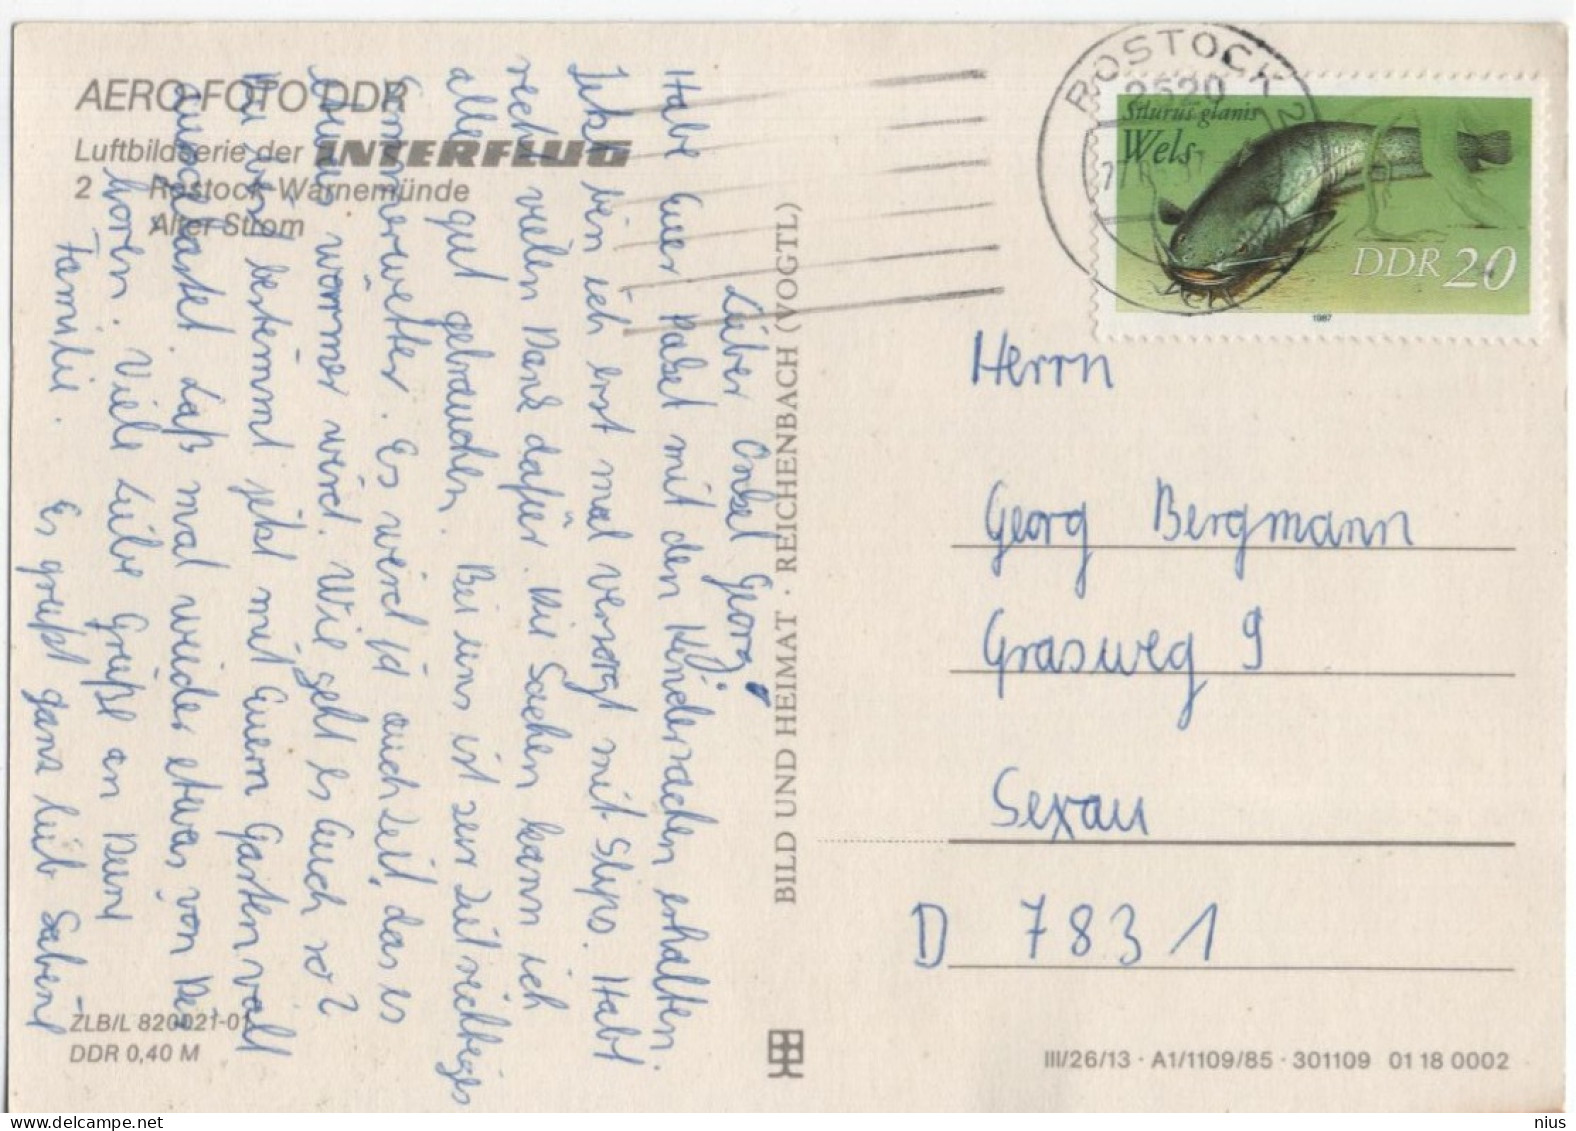 AERO-FOTO DDR
Luftbildserie der INTERFLUG
2 Rostock-Warnemünde
Alter Strom
Lieber Onkel Georg,
Habe Euer Paket mit den Kindersachen erhalten.
Jetzt bin ich erst mal versorgt mit Slips. Habt
recht vielen Dank dafür. Die Sachen kann ich
alle gut gebrauchen. Bei uns ist zur Zeit richtiges
Sommerwetter. Es wird ja auch Zeit, das es
wärmer wird. Wie geht es Euch so?
bestimmt jetzt mit Euern Garten voll
ausgelastet. Laß mal wieder etwas von Dir
hören. Viele liebe Grüße an Deine
Familie. Es grüßt ganz lieb Sabine
BILD UND HEIMAT · REICHENBACH (VOGTL)
ZLB/L 820021-01
DDR 0,40 M
ROSTOCK 2
2520
Silurus glanis
Wels
DDR 20
1987
Herrn
Georg Bergmann
Grasweg 9
Sexau
D 7831
III/26/13 · A1/1109/85 · 301109 01 18 0002
nius